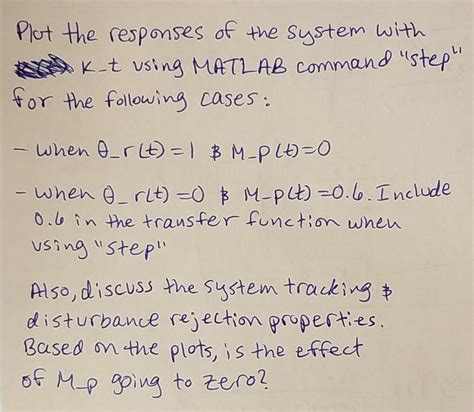 Plot the responses of the system with
K_t using MATLAB command "step"
for the following cases:
- when θ_r(t)=1 & M_p(t)=0
- when θ_r(t)=0 & M_p(t)=0.6. Include
0.6 in the transfer function when
using "step"
Also, discuss the system tracking &
disturbance rejection properties.
Based on the plots, is the effect
of M_p going to zero?